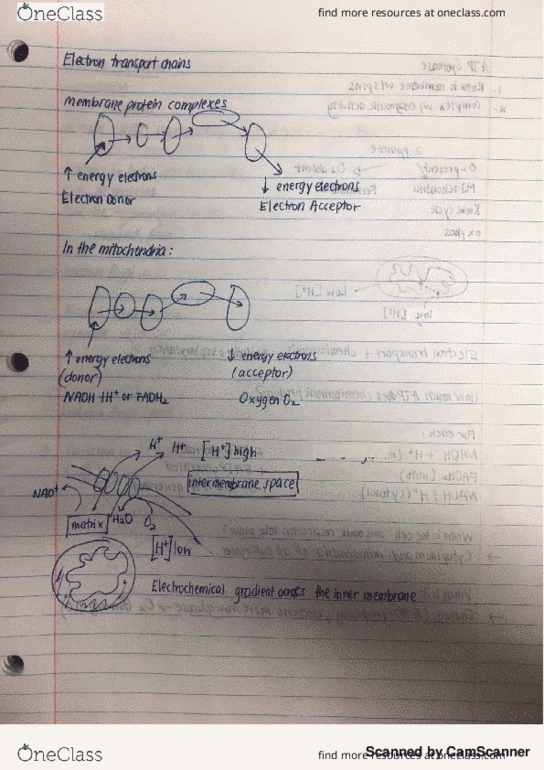 OneClass
find more resources at oneclass.com
Electron transport chains
membrane protein complexes
↑ energy electrons
Electron Donor
↓ energy electrons
Electron Acceptor
In the mitochondria:
↑ energy electrons
(donor)
NADH +H⁺ or FADH₂
↓ energy electrons
(acceptor)
Oxygen O₂
H⁺ H⁺ [H⁺] high
intermembrane space
NAD⁺
matrix H₂O O₂
[H⁺] low
Electrochemical gradient across the inner membrane
OneClass
find more resources at oneclass.com
Scanned by CamScanner